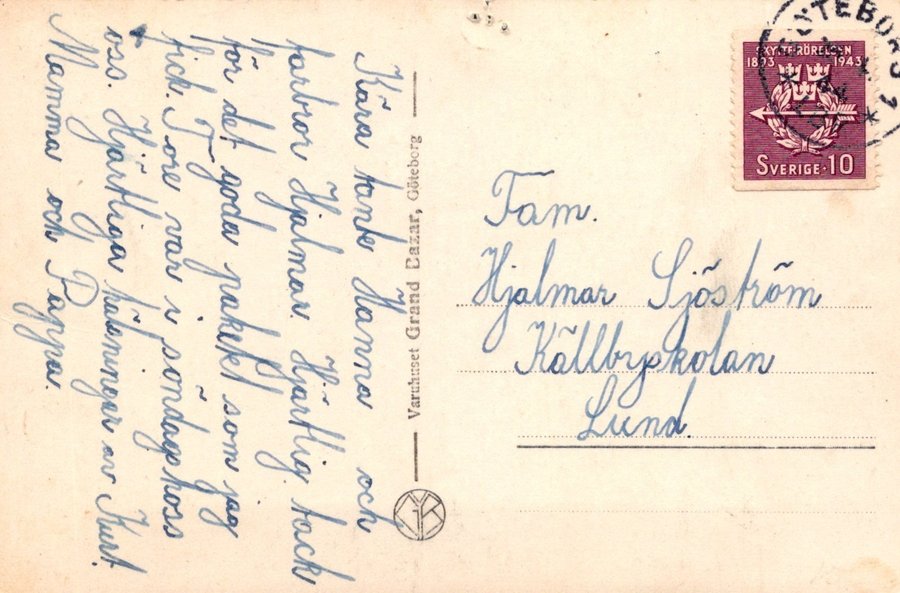 Kära tante Hanna och
farbror Hjalmar. Hjärtlig tack
för det goda paketet som jag
fick. Tore var i söndags hoss
oss. Hjärtliga hälsningar av Kurt
Mamma och Pappa.
Varuhuset Grand Bazar, Göteborg
GÖTEBORG 1
SKYTTERÖRELSEN
1893 1943
SVERIGE·10
Fam.
Hjalmar Sjöström
Källbyskolan
Lund.